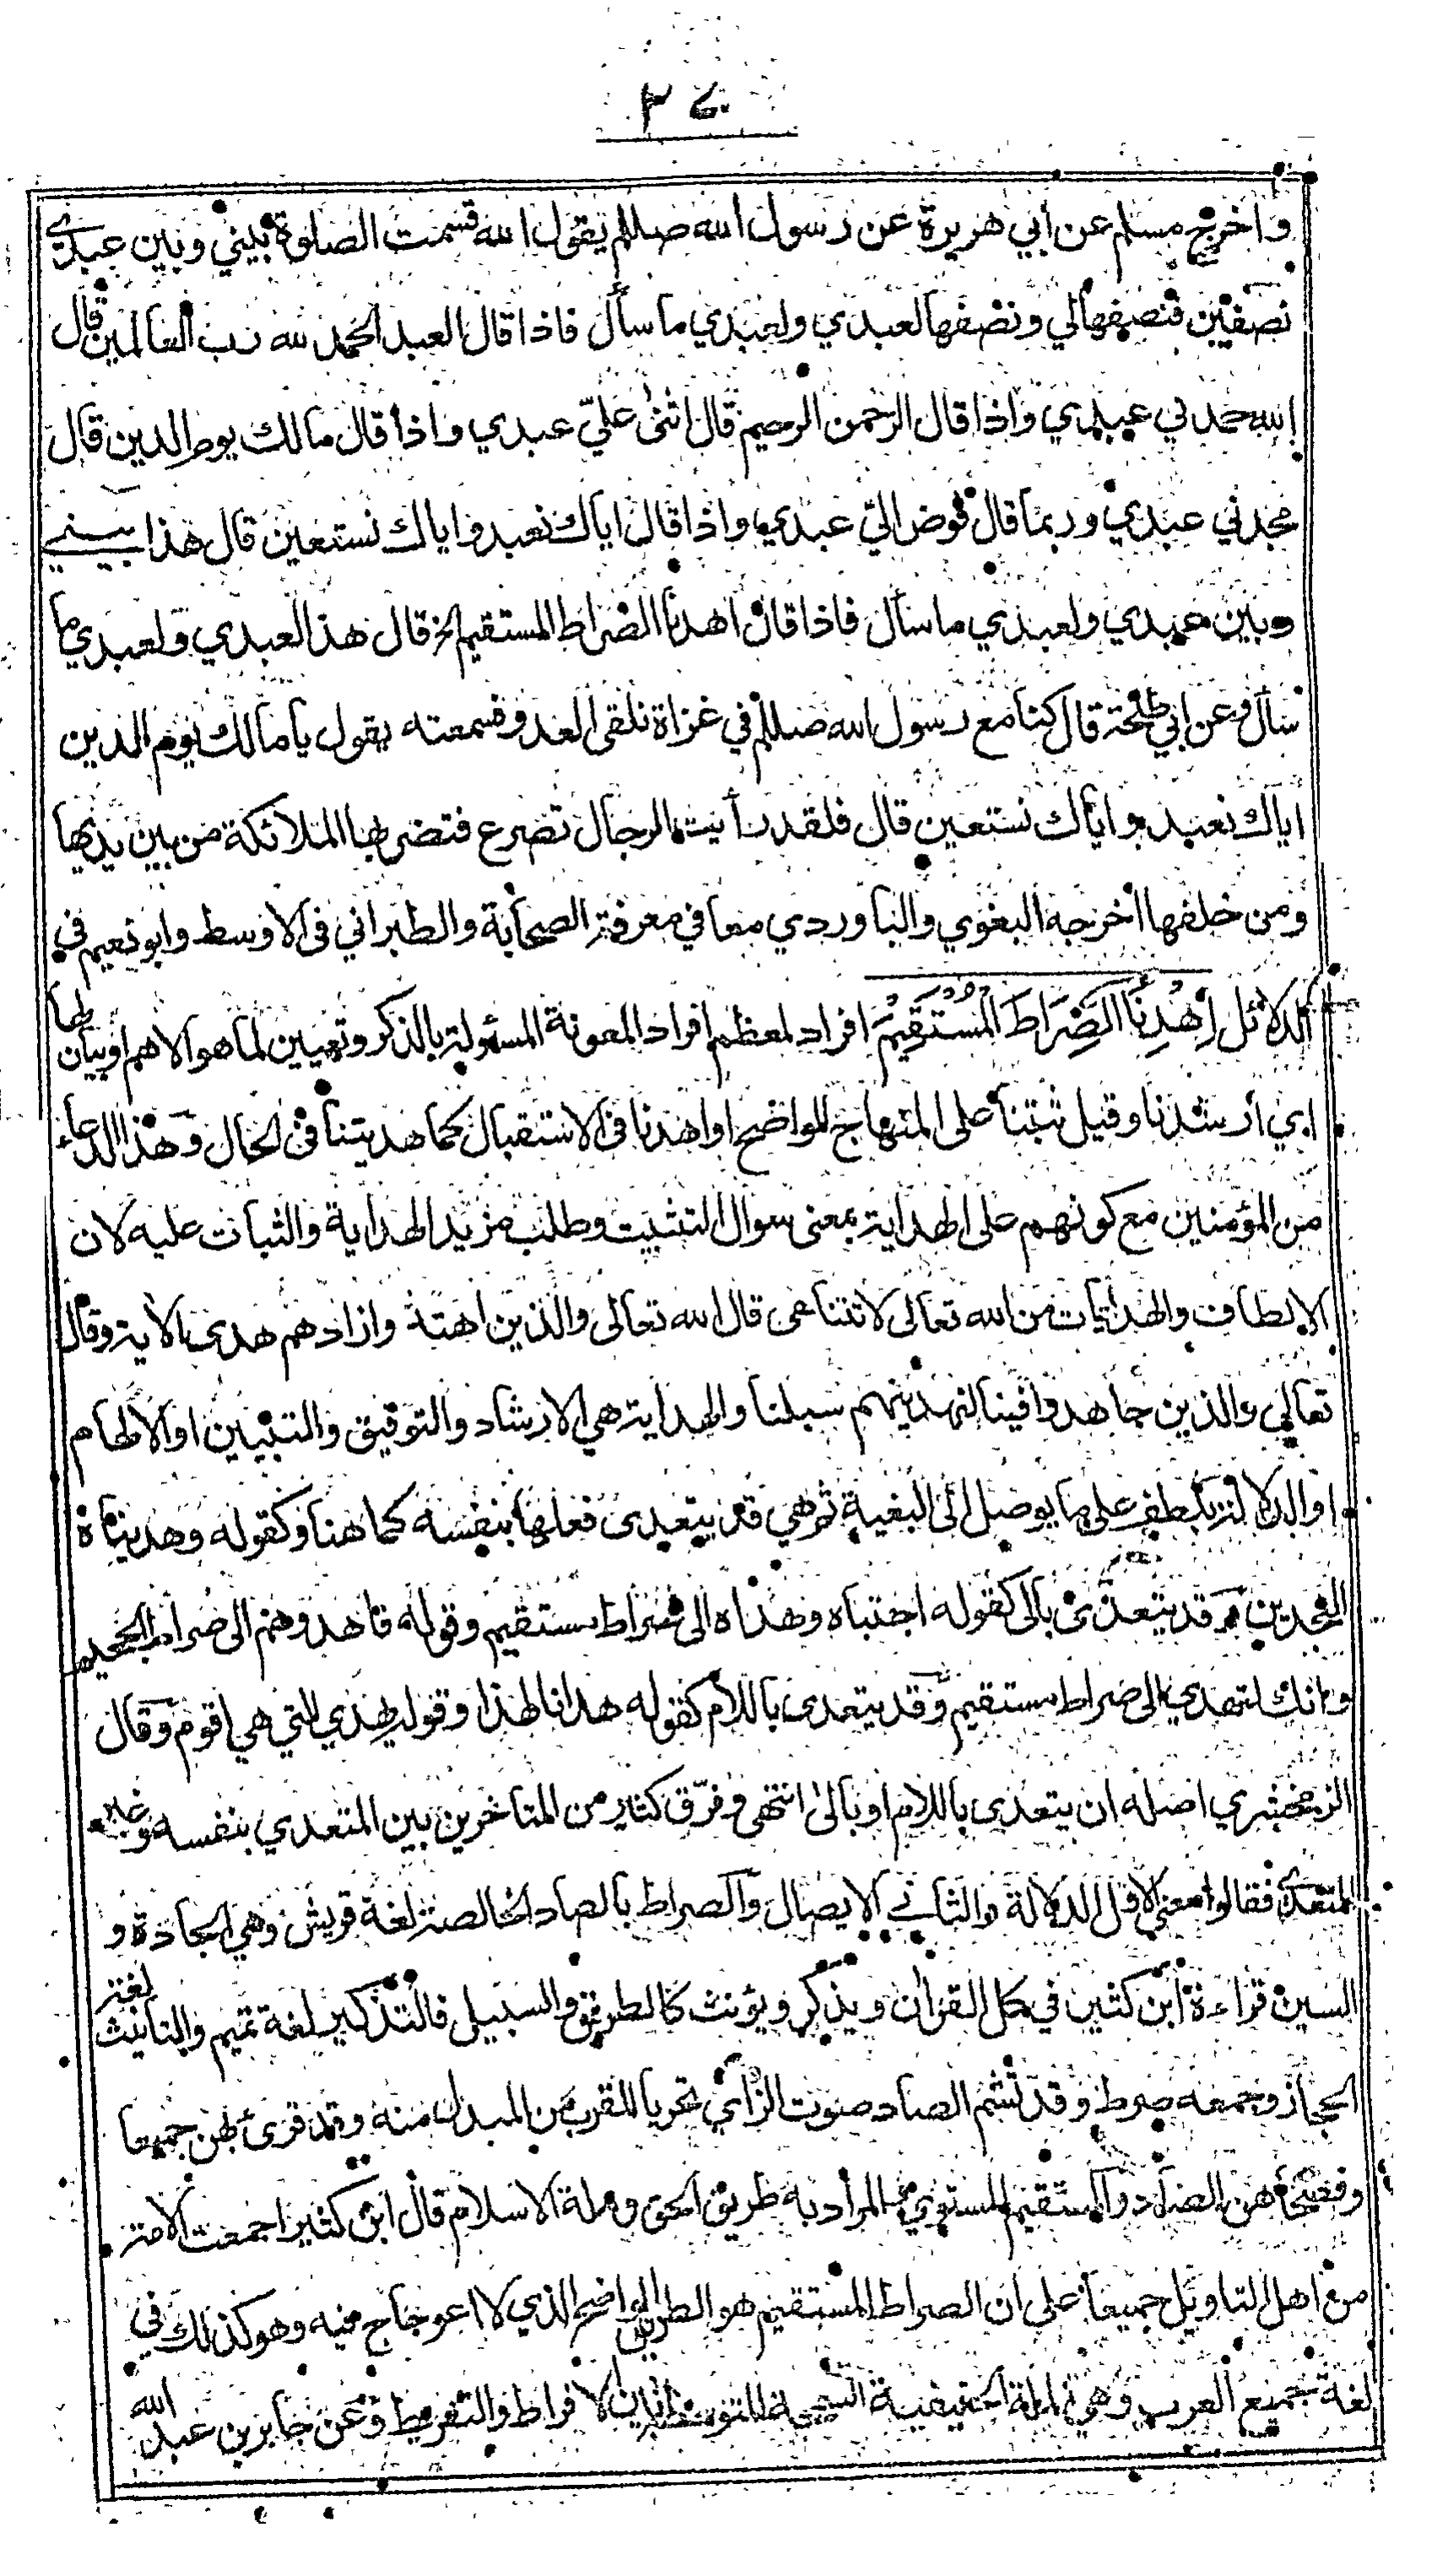 ٣٤
واخرج مسلم عن أبي هريرة عن رسول الله صللم يقول الله قسمت الصلوة بيني وبين عبدي
نصفين فنصفها لي ونصفها لعبدي ولعبدي ما سأل فاذا قال العبد الحمد لله رب العالمين قال
الله حمدني عبدي واذا قال الرحمن الرحيم قال اثنى عليّ عبدي واذا قال مالك يوم الدين قال
مجدني عبدي وربما قال فوض اليّ عبدي واذا قال اياك نعبد واياك نستعين قال هذا بيني
وبين عبدي ولعبدي ما سأل فاذا قال اهدنا الصراط المستقيم الخ قال هذا لعبدي ولعبدي ما
سأل وعن ابي طلحة قال كنا مع رسول الله صللم في غزاة نلقى العدو فسمعته يقول يا مالك يوم الدين
اياك نعبد واياك نستعين قال فلقد رأيت الرجال تصرع فتضربها الملائكة من بين يديها
ومن خلفها اخرجه البغوي والباوردي معا في معرفة الصحابة والطبراني في الاوسط وابو نعيم في
الدلائل اِهْدِنَا الصِّرَاطَ الْمُسْتَقِيْمَ افراد لمعظم افراد المعونة المسئولة بالذكر وتعيين لما هو الاهم او بيان لها
اي أرشدنا وقيل ثبتنا على المنهاج الواضح او اهدنا في الاستقبال كما هديتنا في الحال وهذا الدعاء
من المؤمنين مع كونهم على الهداية بمعنى سوال التثبيت وطلب مزيد الهداية والثبات عليه لان
الالطاف والهدايات من الله تعالى لا تتناهى قال الله تعالى والذين اهتدوا زادهم هدى الاية وقال
تعالى والذين جاهدوا فينا لنهدينهم سبلنا والهداية هي الارشاد والتوفيق والتبيين او الالهام
او الدلالة بلطف على ما يوصل الى البغية ثم هي قد يتعدى فعلها بنفسه كما هنا وكقوله وهديناه
النجدين وقد يتعدى بالى كقوله اجتباه وهداه الى صراط مستقيم وقوله فاهدوهم الى صراط الجحيم
وانك لتهدي الى صراط مستقيم وقد يتعدى باللام كقوله هدانا لهذا وقوله يهدي للتي هي اقوم وقال
الزمخشري اصله ان يتعدى باللام او بالى انتهى وفرّق كثير من المتاخرين بين المتعدي بنفسه وغير
المتعدي فقالوا معنى الاول الدلالة والثاني الايصال والصراط بالصاد الخالصة لغة قريش وهي الجادة و
السين قراءة ابن كثير في كل القران ويذكر ويؤنث كالطريق والسبيل فالتذكير لغة تميم والتانيث لغة
الحجاز وجمعه صرط وقد تشم الصاد صوت الزاي تحريا للقرب من المبدل منه وقد قرئ بهن جميعا
وفصحىهن الصاد والمستقيم المستوي المراد به طريق الحق وملة الاسلام قال ابن كثير اجمعت الامة
من اهل التاويل جميعا على ان الصراط المستقيم هو الطريق الواضح الذي لا اعوجاج فيه وهو كذلك في
لغة جميع العرب وهي الملة الحنيفية السمحة المتوسطة بين الافراط والتفريط وعن جابر بن عبد الله